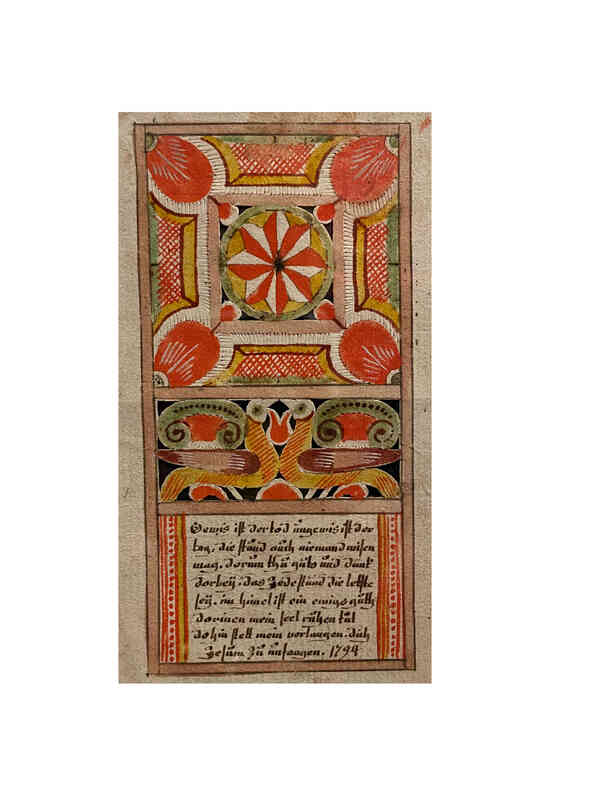 Gewis ist der tod ungewis ist der
tag. die stund auch niemand wisen
mag. darum thu guts und dünk
darbeÿ. das Jede stund die letste
seÿ. im himel ist ein ewigs guth
darinen mein seel ruhen tut
dahin stett mein verlangen. duh
Jesum zu umfangen. 1794